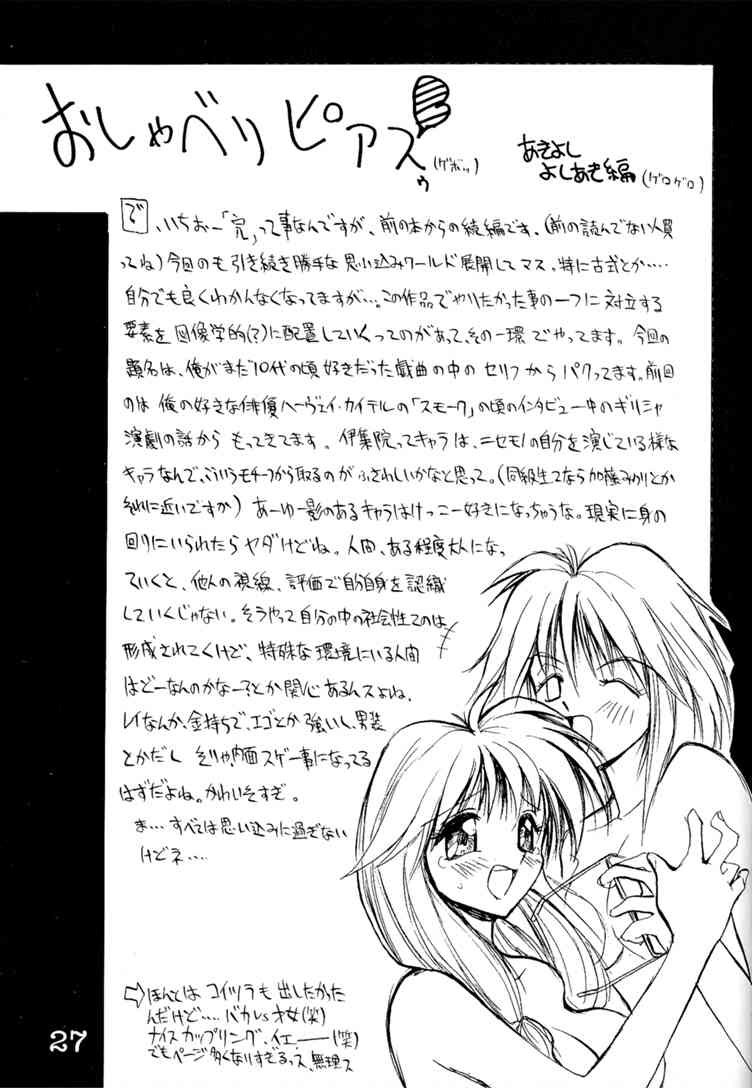 おしゃべりピアスゥ
(ゲボッ)
あきよし
よしあき編(ゲロゲロ)
で、いちおー「完」って事なんですが、前の本からの続編です、(前の読んでない人買
ってね)今回のも引き続き勝手な思い込みワールド展開してマス。特に古式とか‥‥
自分でも良くわかんなくなってますが…。この作品でやりたかった事の一つに対立する
要素を図像学的(?)に配置していくってのがあって、その一環でやってます。今回の
題名は、俺がまだ10代の頃好きだった戯曲の中のセリフからパクってます。前回
のは俺の好きな俳優ハーヴェイ・カイテルの「スモーク」の頃のインタビュー中のギリシャ
演劇の話からもってきてます。伊集院ってキャラは、ニセモノの自分を演じている様な
キャラなんで、こういうモチーフから取るのがふさわしいかなと思って。(同級生2なら加藤みのりとか
それに近いですか)あーゆー影のあるキャラはけっこー好きになっちゃうな。現実に身の
回りにいられたらヤダけどね。人間、ある程度大人になっ
ていくと、他人の視線、評価で自分自身を認識
していくじゃない。そうやって自分の中の社会性てのは
形成されてくけど、特殊な環境にいる人間
はどーなんのかなー?とか関心あるんスよね。
レイなんか、金持ちで、エゴとか強いし、男装
とかだし そりゃ内面スゲー事になってる
はずだよね。かわいそすぎ。
ま…すべては思い込みに過ぎない
けどネ‥‥
⇨ほんとは コイツラも出したかった
んだけど‥‥バカvs才女(笑)
ナイスカップリング、イエーー(笑)
でもページ多くなりすぎるっス、無理ス
27